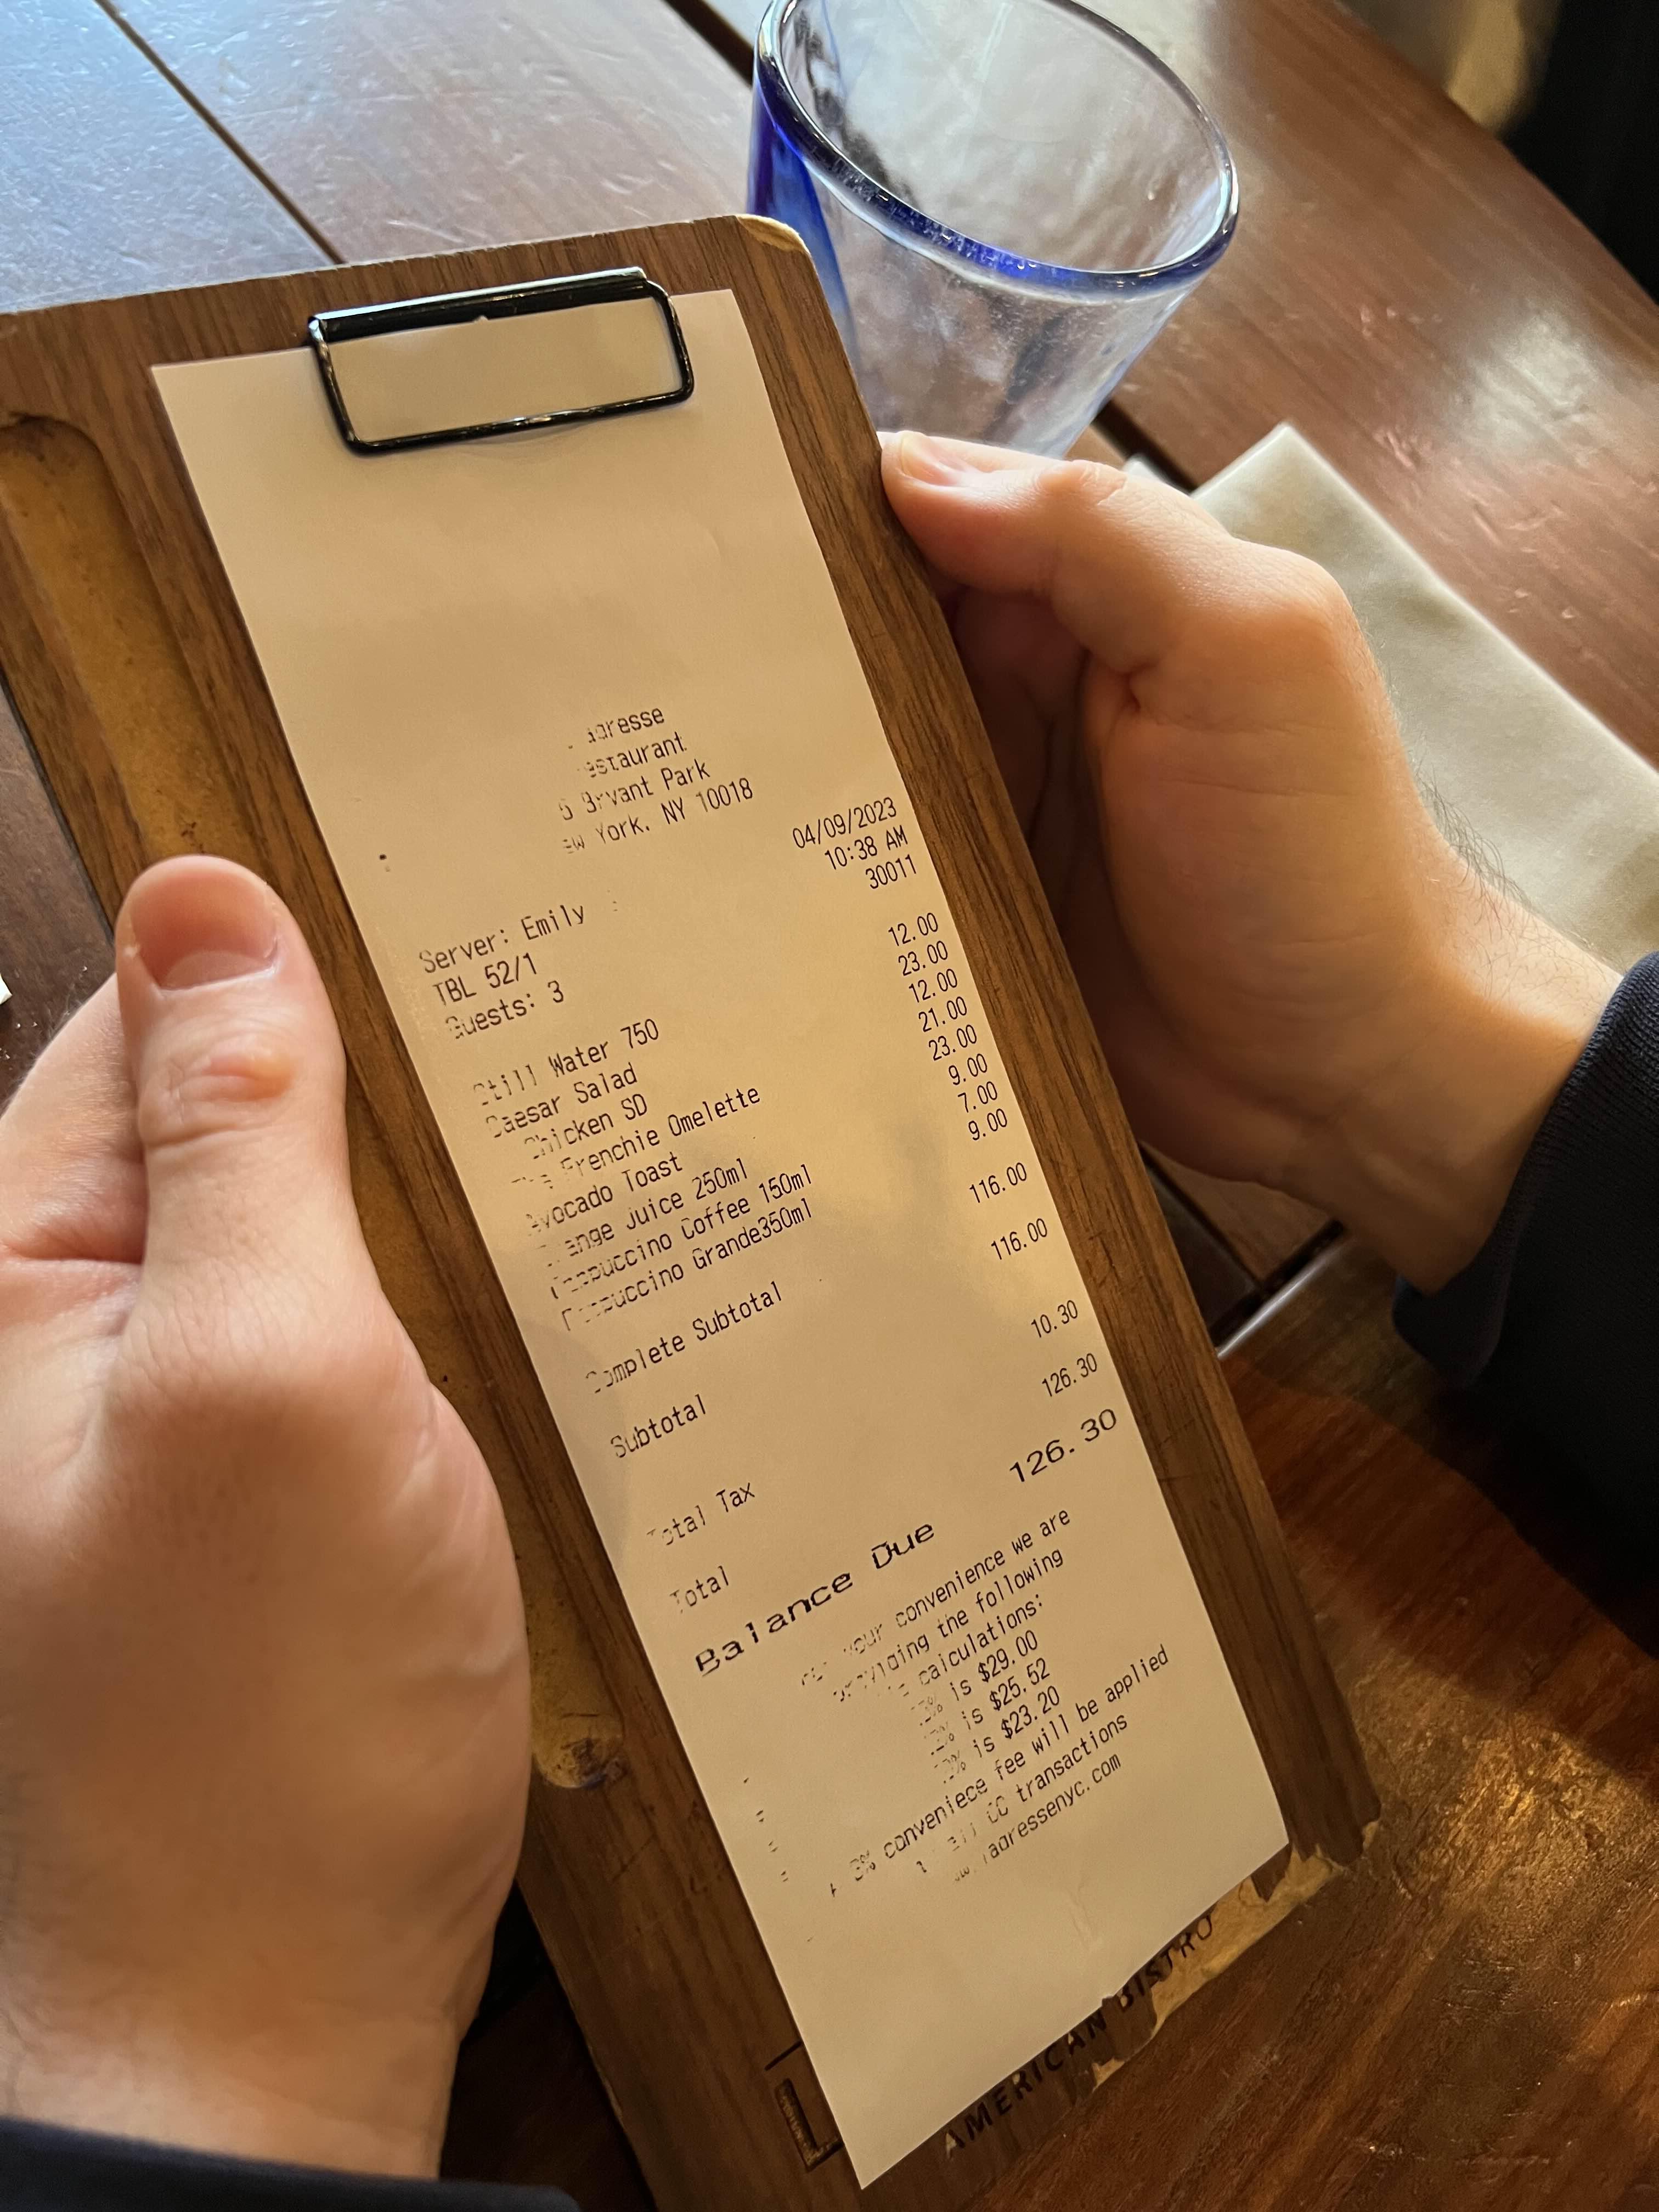 estaurant
Bryant Park
York, NY 10018
04/09/2023
10:38 AM
Server: Emily
30011
TBL 52/1
Guests: 3
Still Water 750 12.00
Caesar Salad 23.00
Chicken SD 12.00
The Frenchie Omelette 21.00
Avocado Toast 23.00
Orange Juice 250ml 9.00
Cappuccino Coffee 150ml 7.00
Cappuccino Grande350ml 9.00
Complete Subtotal 116.00
Subtotal 116.00
Total Tax 10.30
Total 126.30
Balance Due 126.30
For your convenience we are
providing the following
calculations:
is $29.00
is $25.52
is $23.20
A 3% conveniece fee will be applied
all CC transactions
AMERICAN BISTRO